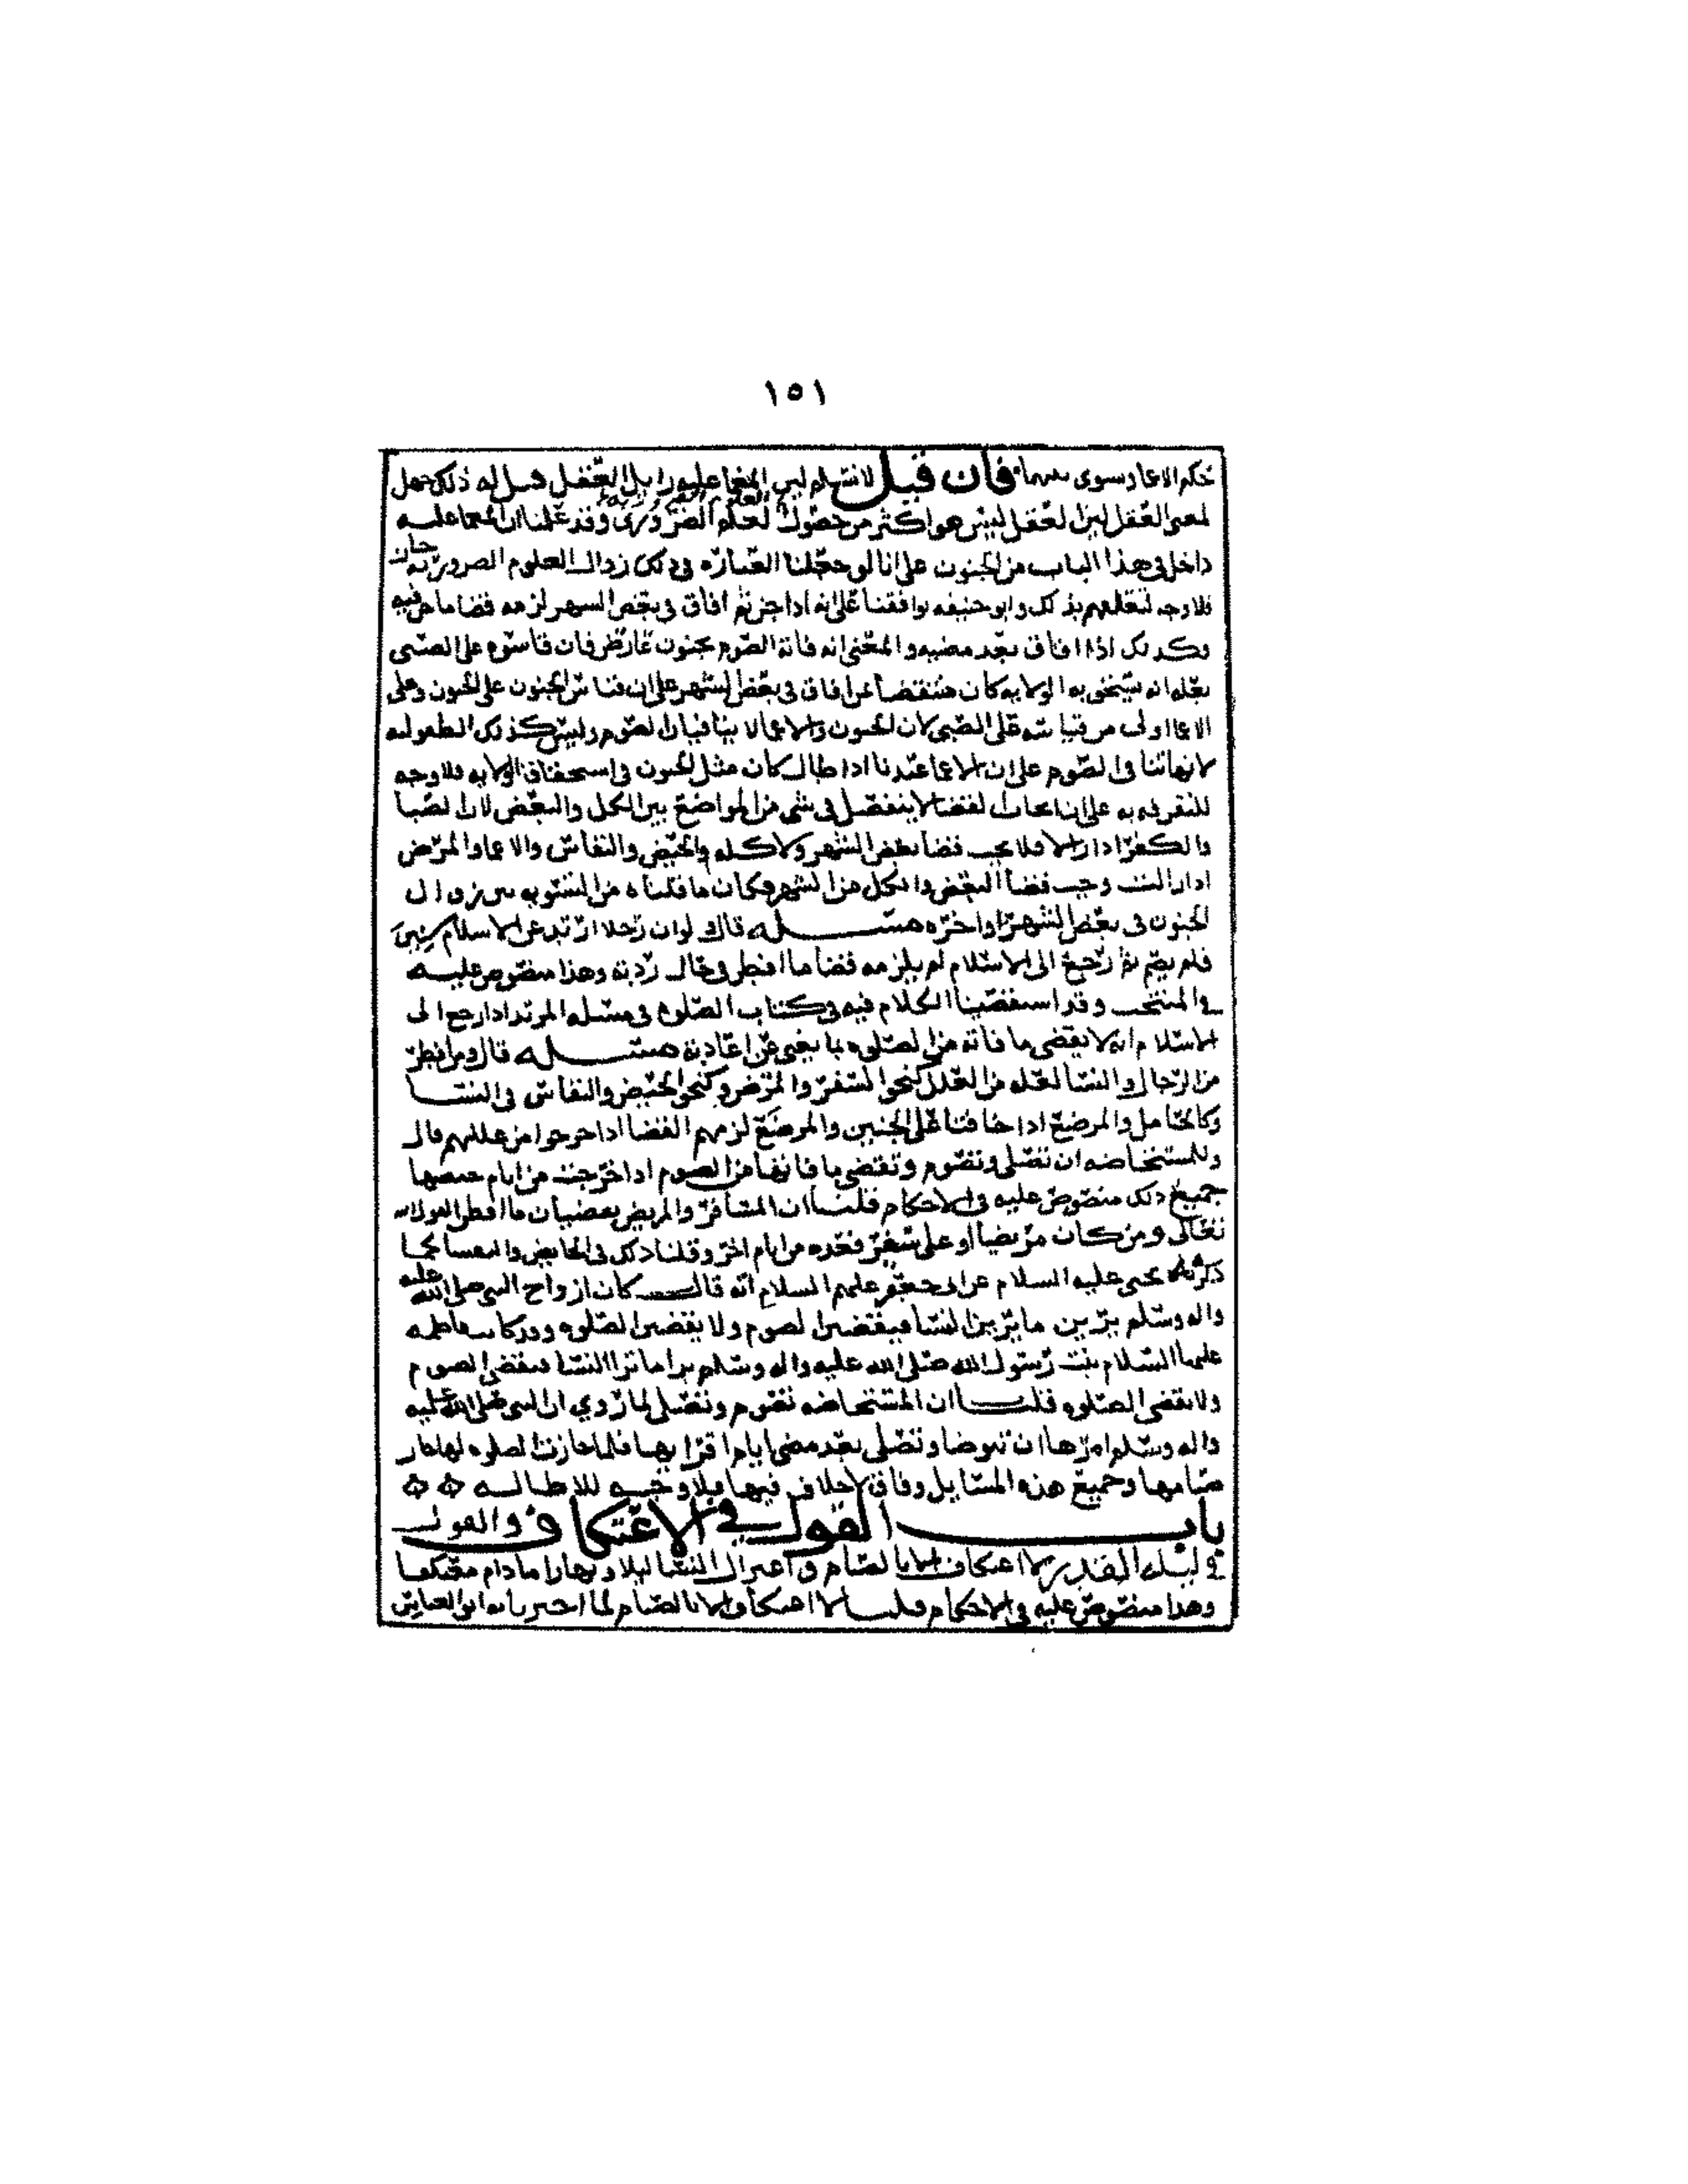 ١٥١
حكم الاغما وسوى بينهما فان قيل لا نسلم ان المغما عليه زايل العقل قيل له ذلك جهل
لمعنى العقل لان العقل ليس هو اكثر من حصول العلوم الضرورية وقد علمنا ان المغما عليه
داخل في هذا الباب من الجنون على انا لو جعلنا العبارة في ذلك زوال العلوم الضرورية جاز
فلا وجه لتعلقهم بذلك وابو حنيفه يوافقنا على انه اذا جن ثم افاق في بعض الشهر لزمه قضا ما مضى فيه
وكذلك اذا افاق بعد مضيه والمعنى انه فاته الصوم بجنون عارض فان قاسوه على الصبي
بعلة انه يستحق به الولايه كان منتقضا بمن افاق في بعض الشهر على ان قياس الجنون على الجنون وعلى
الاغما اولى من قياسه على الصبي لان الجنون والاغما لا ينافيان الصوم وليس كذلك الطفوليه
لانها تنافي الصوم على ان الاغما عندنا اذا طال كان مثل الجنون في استحقاق الولايه فلا وجه
للتفرقه به على ان ايجاب القضا لا ينفصل في شي من المواضع بين الكل والبعض لان الصبا
والكفر اذا زالا فلا يجب قضا بعض الشهر ولا كله والحيض والنفاس والاغما والمرض
اذا زالت وجب قضا البعض والكل من الشهر فكان ما قلناه من التسويه بين زوال
الجنون في بعض الشهر او اخره مسئلـــه قال ولو ان رجلا ارتد عن الاسلام سنين
فلم يصم ثم رجع الى الاسلام لم يلزمه قضا ما افطر في حال ردته وهذا منصوص عليه
في المنتخب وقد استقصينا الكلام فيه في كتاب الصلوه في مسئلة المرتد اذا رجع الى
الاسلام انه لا يقضي ما فاته من الصلوه بما يغني عن اعادته مسئلـــه قال ومن افطر
من الرجال والنسا لعله من العلل كنحو السفر والمرض وكنحو الحيض والنفاس في النسا
وكالحامل والمرضع اذا خافتا على الجنين والمرضع لزمهم القضا اذا خرجوا من عللهم قال
وللمستحاضه ان تصلي وتصوم وتقضي ما فاتها من الصوم اذا خرجت من ايام حيضها
جميع ذلك منصوص عليه في الاحكام قلنا ان المسافر والمريض يقضيان ما افطرا لقول الله
تعالى ومن كان مريضا او على سفر فعده من ايام اخر وقلنا ذلك في الحايض والنفسا لما
ذكره يحيى عليه السلام عن ابي جعفر عليهم السلام انه قال كان ازواج النبي صلى الله عليه
واله وسلم يرين ما يرين النسا فيقضين الصوم ولا يقضين الصلوه وقد كانت فاطمه
عليها السلام بنت رسول الله صلى الله عليه واله وسلم ترا ما ترا النسا فتقضي الصوم
ولا تقضي الصلوه قلنا ان المستحاضه تصوم وتصلي لما روي ان النبي صلى الله عليه
واله وسلم امرها ان تتوضا وتصلي بعد مضي ايام اقرايها فلما جازت الصلوه لها جاز
صيامها وجميع هذه المسايل وفاق لا خلاف فيها فلا وجه للاطاله
باب القول في الاعتكاف والقول
في ليلة القدر لا اعتكاف الا بالصيام واعتزال النسا ليلا ونهارا ما دام معتكفا
وهذا منصوص عليه في الاحكام قلنا لا اعتكاف الا بالصيام لما اخبرنا به ابو العباس